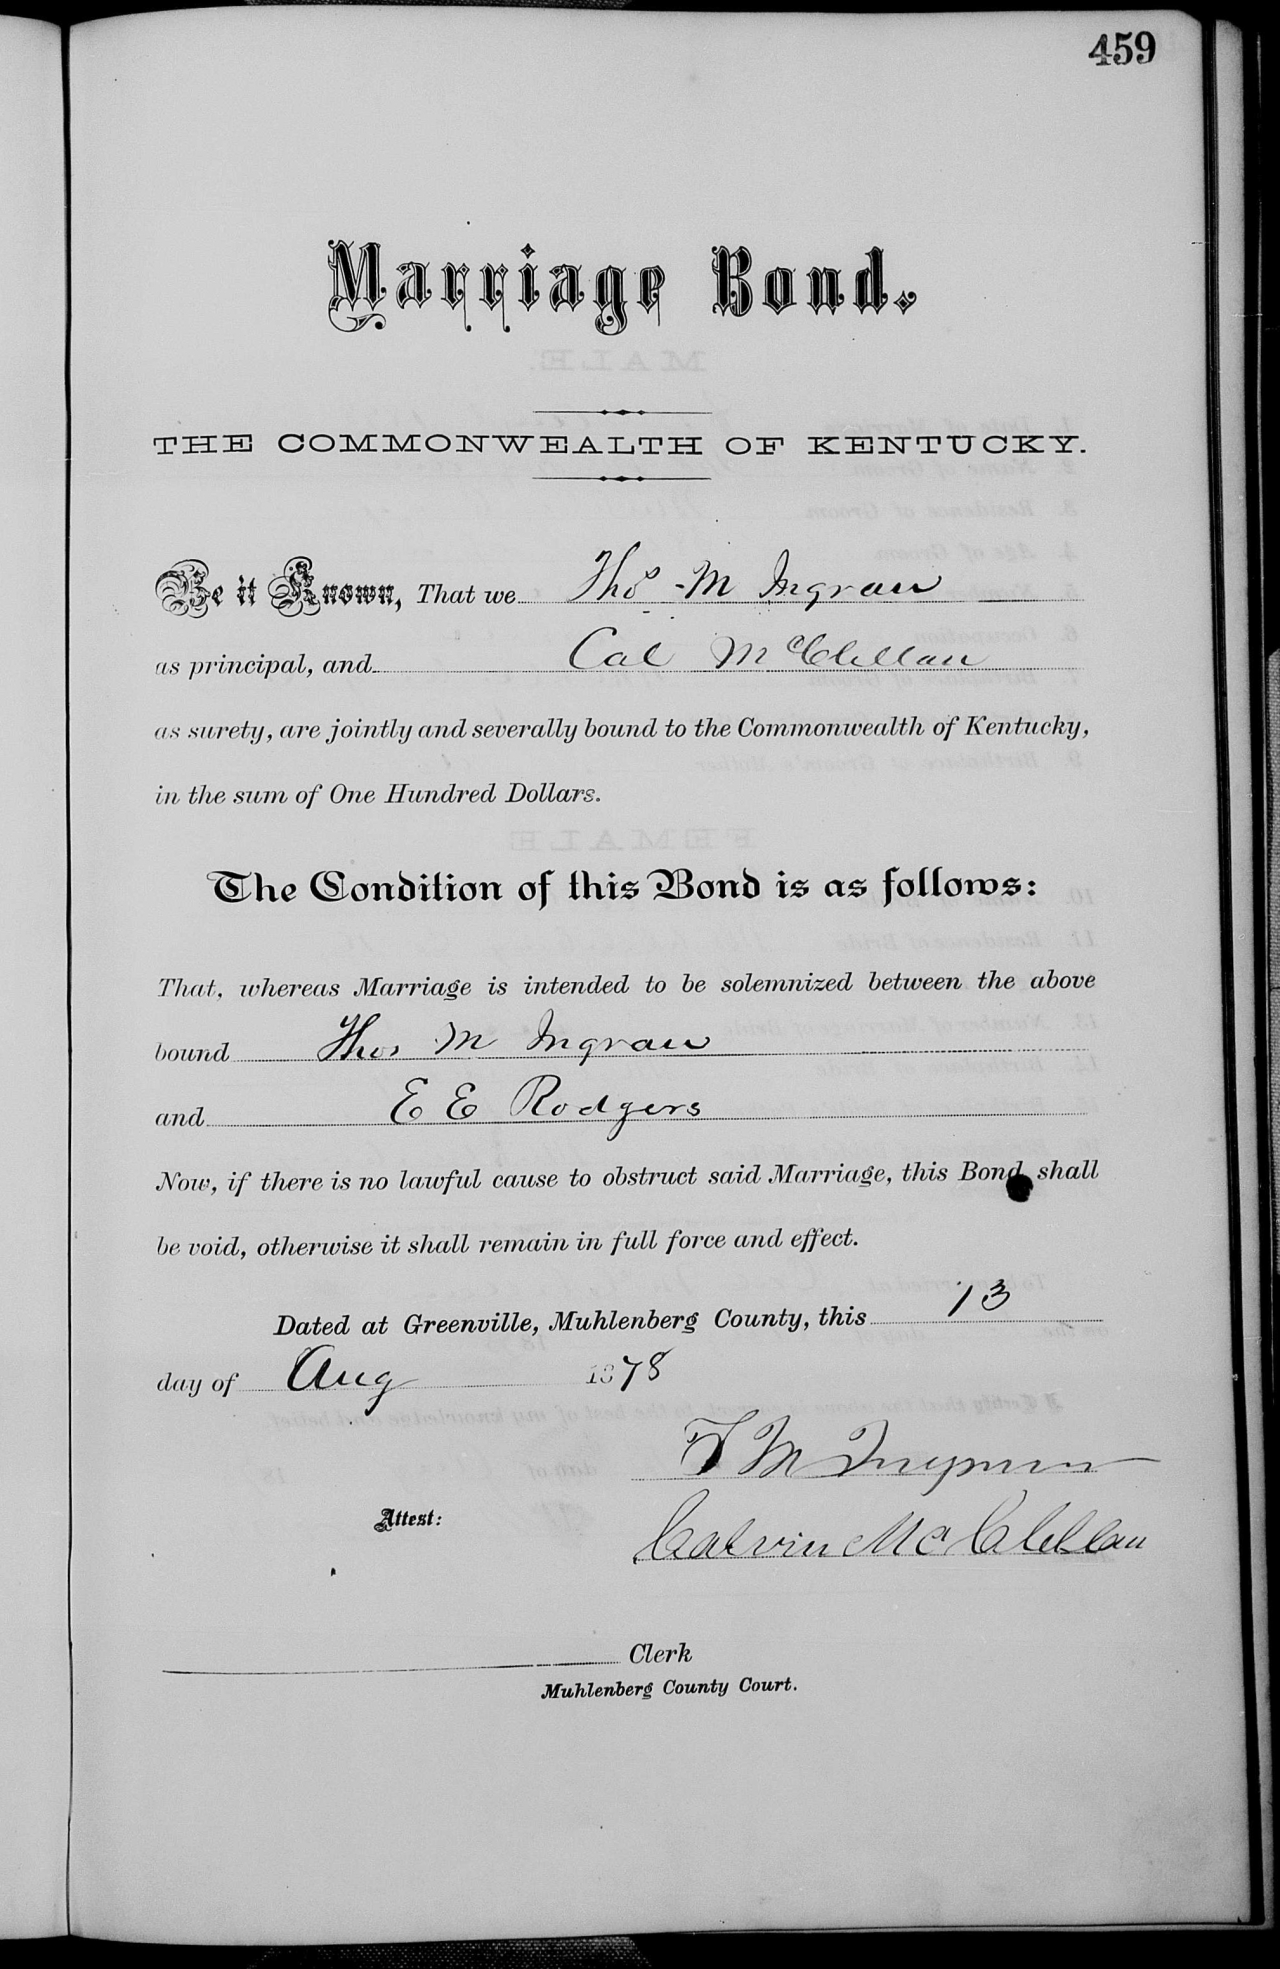 459
Marriage Bond.
THE COMMONWEALTH OF KENTUCKY.
Be it Known, That we Thos M Ingram
as principal, and Cal McClellan
as surety, are jointly and severally bound to the Commonwealth of Kentucky,
in the sum of One Hundred Dollars.
The Condition of this Bond is as follows:
That, whereas Marriage is intended to be solemnized between the above
bound Thos M Ingram
and E E Rodgers
Now, if there is no lawful cause to obstruct said Marriage, this Bond shall
be void, otherwise it shall remain in full force and effect.
Dated at Greenville, Muhlenberg County, this 13
day of Aug 1878
T M Ingram
Attest:
Calvin McClellan
Clerk
Muhlenberg County Court.